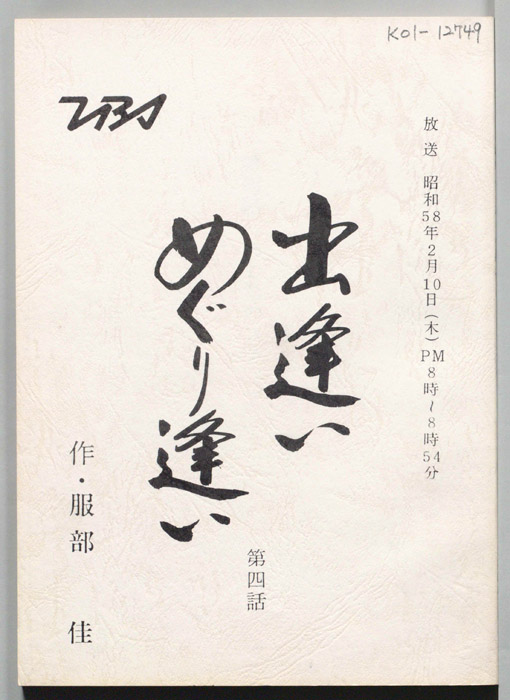 K01-12749
TBS
放送 昭和58年2月10日(木)PM8時~8時54分
出逢い
めぐり逢い
第四話
作・服部 佳